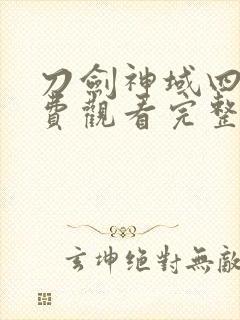 刀劍神域四
費觀看完整
玄坤絕對無敵